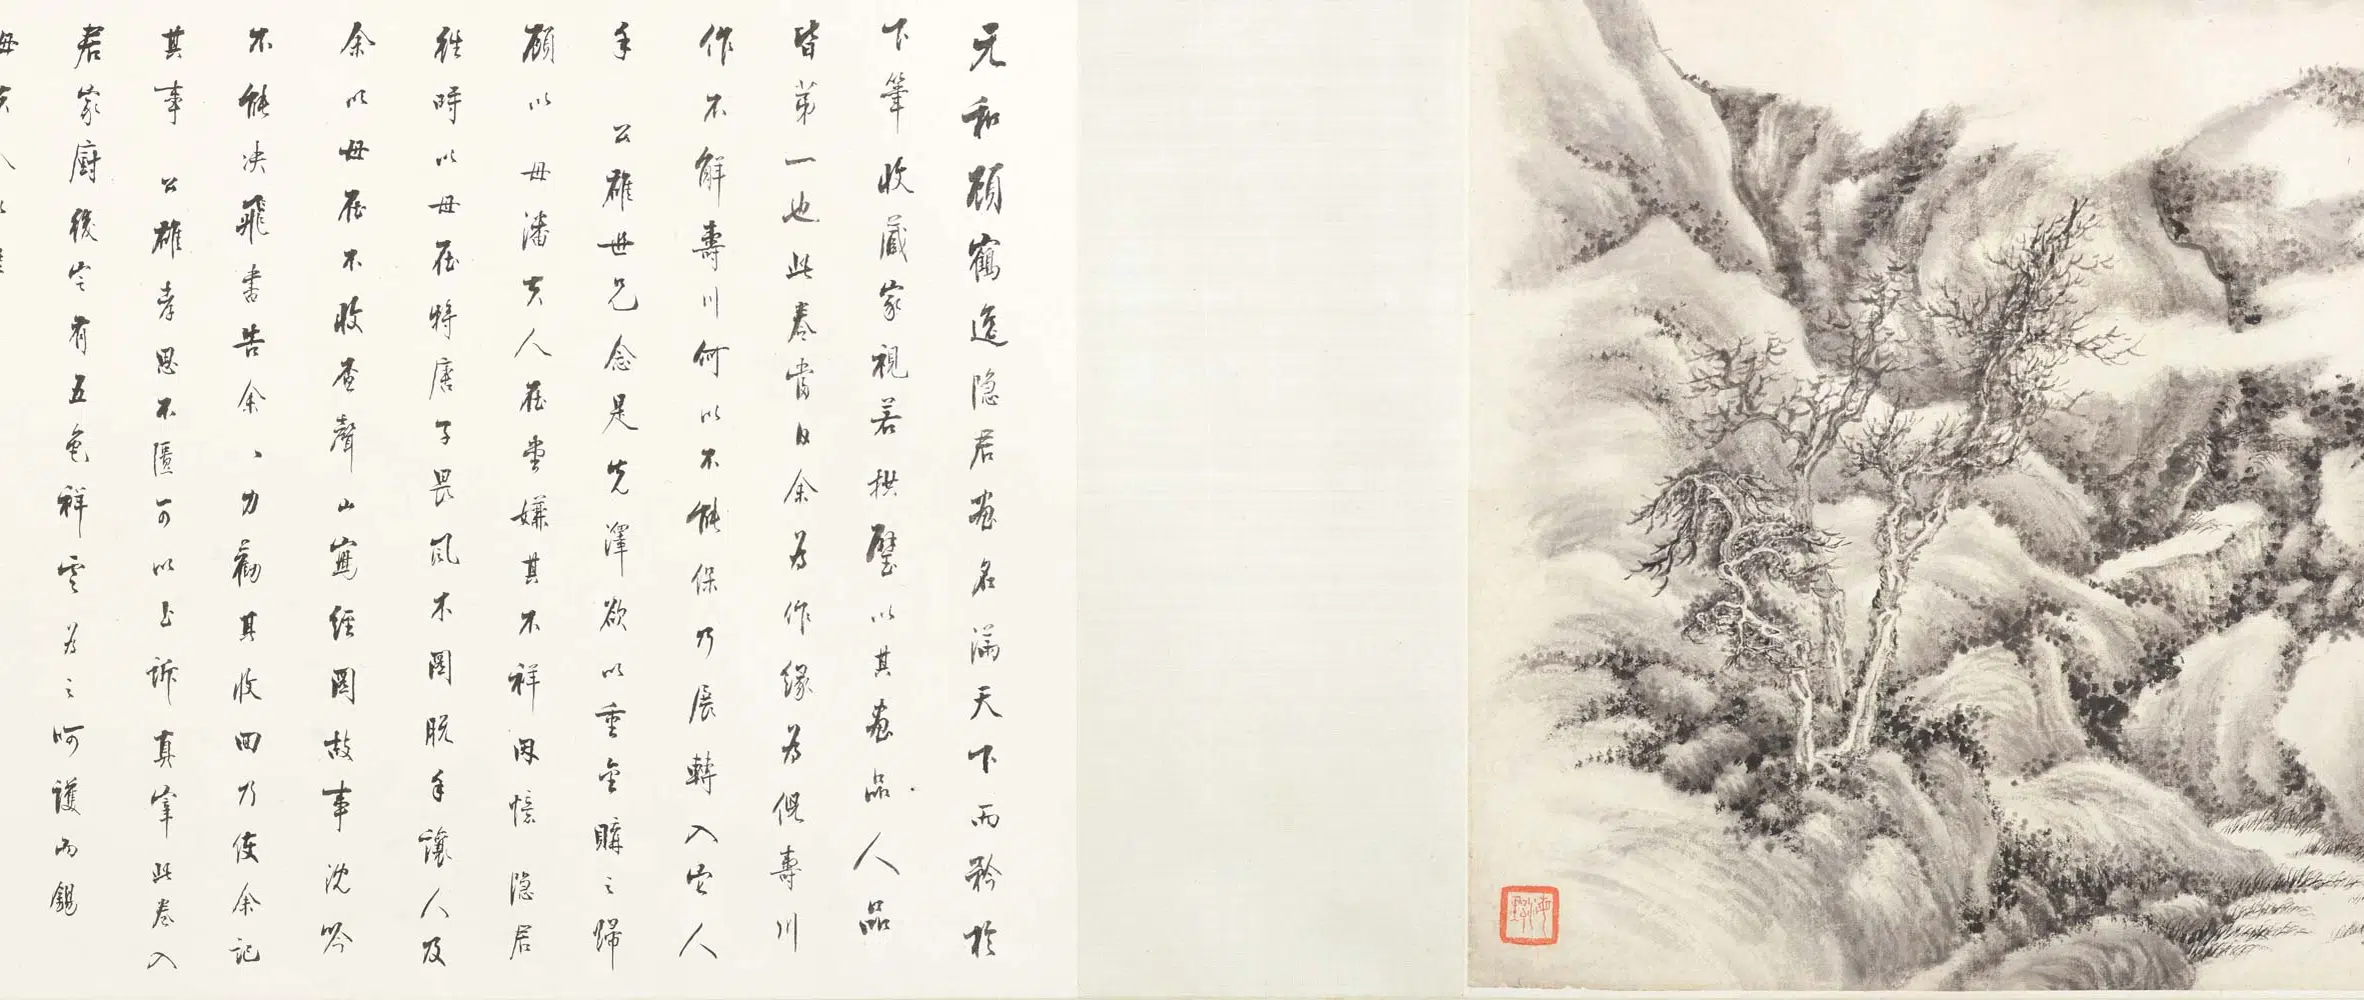 元和顧鶴逸隱居畫名滿天下而矜於
下筆收藏家視若拱璧以其畫品人品
皆第一也此卷當日余為作緣為倪壽川
作不解壽川何以不能保乃展轉入它人
手公雄世兄念是先澤欲以重金購之歸
顧以母潘夫人在堂嫌其不祥因憶隱居
往時以母在將唐子畏風木圖脫手讓人及
余以母在不收查聲山寫經圖故事沈吟
不能決飛書告余、力勸其收回乃使余記
其事公雄孝思不匱可以上訴真宰此卷入
君家廚後定有五色祥雲為之呵護而錫
母夫人以